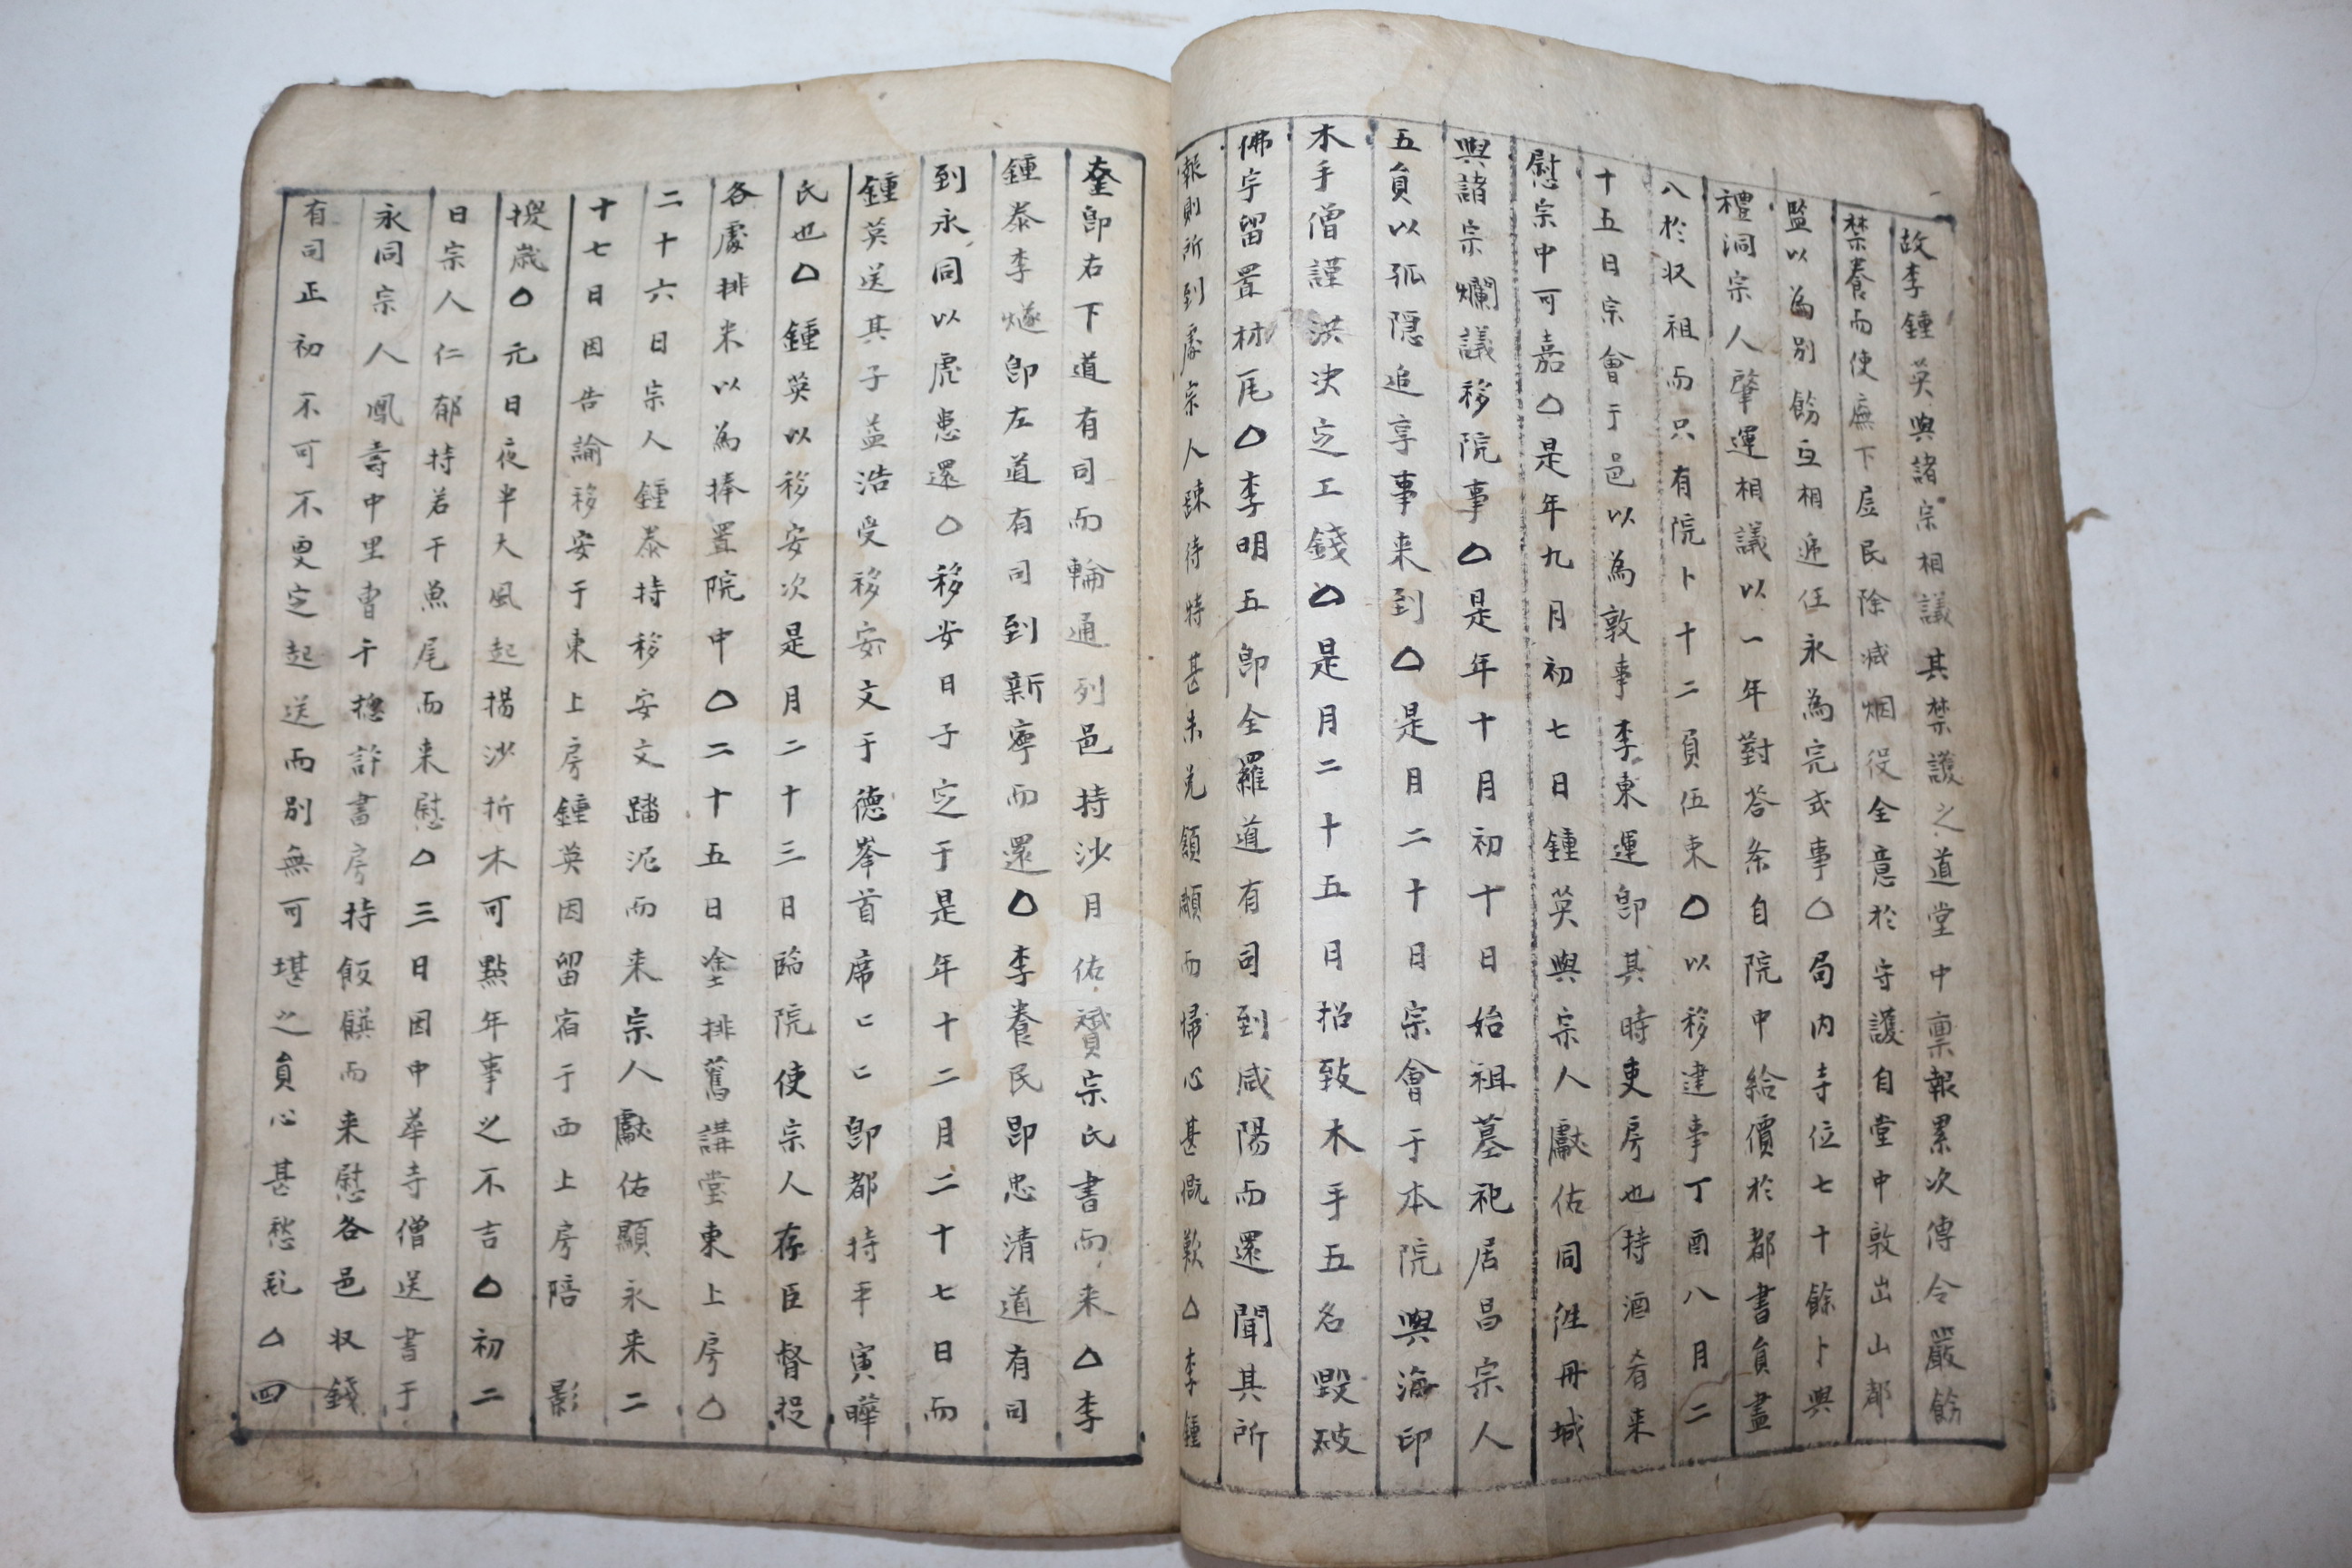 故李鍾英與諸宗相議其禁護之道堂中稟報累次傳令嚴飭
禁養而使廡下居民除減烟役全意於守護自堂中敦出山都
監以為別飭互相遞任永為完式事○局內寺位七十餘卜與
禮洞宗人肇運相議以一年對答条自院中給價於都書員盡
八於収祖而只有院卜十二負伍束○以移建事丁酉八月二
十五日宗會于邑以為敦事李東運卽其時吏房也持酒肴来
慰宗中可嘉○是年九月初七日鍾英與宗人獻佑同徃丹城
與諸宗爛議移院事○是年十月初十日始祖墓祀居昌宗人
五負以孤隠追享事来到○是月二十日宗會于本院與海印
木手僧謹洪决定工錢○是月二十五日招致木手五名毀破
佛宇留置材瓦○李明五卽全羅道有司到咸陽而還聞其所
報則所到處宗人踈待特甚未免顉顣而帰心甚慨歎○李鍾
卽右下道有司而輪通列邑持沙月佑贇宗氏書而来○李
鍾泰李燧卽左道有司到新寧而還○李養民卽忠清道有司
到永同以虎患還○移安日子定于是年十二月二十七日而
鍾英送其子益浩受移安文于德峯首席匸匸卽都持平寅曄
氏也○鍾英以移安次是月二十三日臨院使宗人存臣督捉
各處排米以為捧置院中○二十五日塗排舊講堂東上房○
二十六日宗人鍾泰持移安文踏泥而来宗人獻佑顯永来二
十七日因告諭移安于東上房鍾英因留宿于西上房陪 影
捘歲○元日夜半大風起揚沙折木可點年事之不吉○初二
日宗人仁郁持若干魚尾而来慰○三日因中華寺僧送書于
永同宗人鳳壽中里曺干摠許書房持飯饌而来慰各邑収錢
有司正初不可不更定起送而別無可堪之負心甚愁乱○四